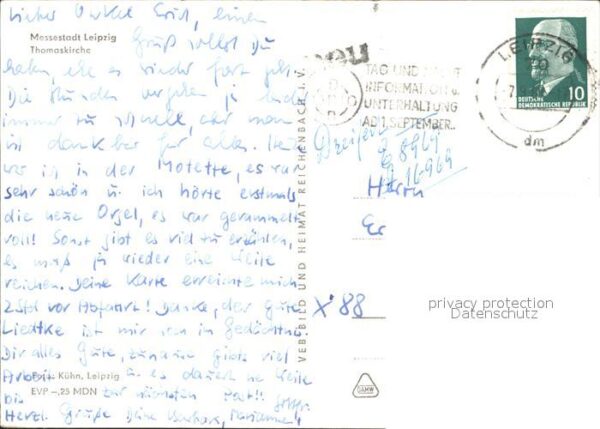 Lieber Onkel Erich, einen
Messestadt Leipzig
Thomaskirche
Gruß sollst Du
haben, ehe es wieder fort geht.
Die Stunden vergehen ja leider
immer zu schnell, aber man
ist dankbar für alles. Heute
wo ich in der Motette, es war
sehr schön u. ich hörte erstmals
die neue Orgel, es war gerammelt
voll! Sonst gibt es viel zu erzählen,
es muß ja wieder eine Weile
reichen. Deine Karte erreichte mich
2 Std vor Abfahrt! Danke, der gute
Liedtke ist mir noch in Gedächtnis.
Dir alles Gute, zuhause gibts viel
Arbeit u. es dauert ne Weile
Foto: Kühn, Leipzig
bis zur nächsten Post!!
EVP –,25 MDN
Herzl. Grüße Deine Marianne!
VEB BILD UND HEIMAT REICHENBACH I. V.
neu
TAG UND NACHT
INFORMATION u.
UNTERHALTUNG
AB 1. SEPTEMBER
LEIPZIG
dm
10
DEUTSCHE
DEMOKRATISCHE REPUBLIK
Herrn
Er
X' 88
privacy protection
Datenschutz